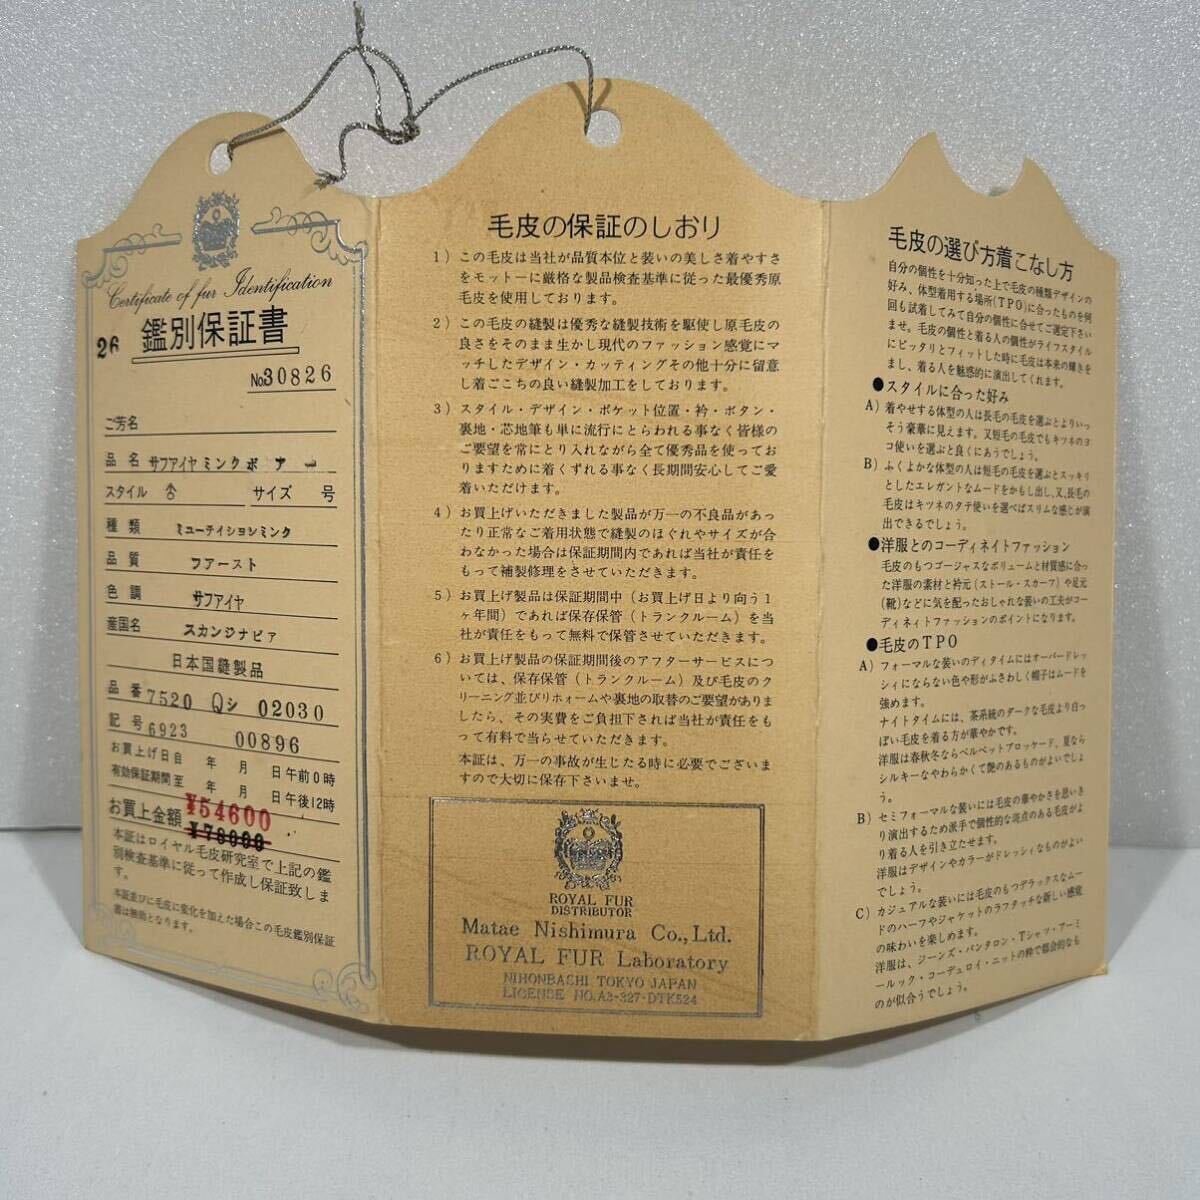 Certificate of fur Identification
26 鑑別保証書
No30826
ご芳名
品名 サファイヤミンクボアー
スタイル 杏 サイズ 号
種類 ミューテイションミンク
品質 ファースト
色調 サファイヤ
産国名 スカンジナビア
日本国縫製品
品番 7520 Qシ 02030
記号 6923 00896
お買上げ日自 年 月 日午前0時
有効保証期間至 年 月 日午後12時
お買上金額 ¥54600
¥78000
本証はロイヤル毛皮研究室で上記の鑑
別検査基準に従って作成し保証致しま
す。
本証並びに毛皮に変化を加えた場合この毛皮鑑別保証
書は無効となります。
毛皮の保証のしおり
1) この毛皮は当社が品質本位と装いの美しさ着やすさ
をモットーに厳格な製品検査基準に従った最優秀原
毛皮を使用しております。
2) この毛皮の縫製は優秀な縫製技術を駆使し原毛皮の
良さをそのまま生かし現代のファッション感覚にマ
ッチしたデザイン・カッティングその他十分に留意
し着ごこちの良い縫製加工をしております。
3) スタイル・デザイン・ポケット位置・衿・ボタン・
裏地・芯地筆も単に流行にとらわれる事なく皆様の
ご要望を常にとり入れながら全て優秀品を使ってお
りますために着くずれる事なく長期間安心してご愛
着いただけます。
4) お買上げいただきました製品が万一の不良品があっ
たり正常なご着用状態で縫製のほぐれやサイズが合
わなかった場合は保証期間内であれば当社が責任を
もって補製修理をさせていただきます。
5) お買上げ製品は保証期間中(お買上げ日より向う1
ヶ年間)であれば保存保管(トランクルーム)を当
社が責任をもって無料で保管させていただきます。
6) お買上げ製品の保証期間後のアフターサービスにつ
いては、保存保管(トランクルーム)及び毛皮のク
リーニング並びリホォームや裏地の取替のご要望がありま
したら、その実費をご負担下されば当社が責任をも
って有料で当らせていただきます。
本証は、万一の事故が生じたる時に必要でございま
すので大切に保存下さいませ。
ROYAL FUR
DISTRIBUTOR
Matae Nishimura Co.,Ltd.
ROYAL FUR Laboratory
NIHONBASHI TOKYO JAPAN
LICENSE NO.A3-327-DTK524
毛皮の選び方着こなし方
自分の個性を十分知った上で毛皮の種類デザインの
好み、体型着用する場所(TPO)に合ったものを何
回も試着してみて自分の個性に合せてご選定下さい
ませ。毛皮の個性と着る人の個性がライフスタイル
にピッタリとフィットした時に毛皮は本来の輝きを
まし、着る人を魅惑的に演出してくれます。
●スタイルに合った好み
A) 着やせする体型の人は長毛の毛皮を選ぶとよりいっ
そう豪華に見えます。又短毛の毛皮でもキツネのヨ
コ使いを選ぶと良くにあうでしょう。
B) ふくよかな体型の人は短毛の毛皮を選ぶとスッキリ
としたエレガントなムードをかもし出し、又、長毛の
毛皮はキツネのタテ使いを選べばスリムな感じが演
出できるでしょう。
●洋服とのコーディネイトファッション
毛皮のもつゴージャスなボリュームと材質感に合っ
た洋服の素材と衿元(ストール・スカーフ)や足元
(靴)などに気を配ったおしゃれな装いの工夫がコー
ディネィトファッションのポイントになります。
●毛皮のTPO
A) フォーマルな装いのディタイムにはオーバードレッ
シィにならない色や形がふさわしく帽子はムードを
強めます。
ナイトタイムには、茶系統のダークな毛皮より白っ
ぽい毛皮を着る方が華やかです。
洋服は春秋冬ならベルベットブロッケード、夏なら
シルキーなやわらかくて艶のあるものがよいでしょ
う。
B) セミフォーマルな装いには毛皮の華やかさを思いき
り演出するため派手で個性的な斑点のある毛皮がよ
り着る人を引き立たせます。
洋服はデザインやカラーがドレッシィなものがよい
でしょう。
C) カジュアルな装いには毛皮のもつデラックスなムー
ドのハーフやジャケットのラフタッチな新しい感覚
の味わいを楽しめます。
洋服は、ジーンズ・パンタロン・Tシャツ・アーミ
ールック・コーデュロイ・ニットの粋で都会的なも
のが似合うでしょう。